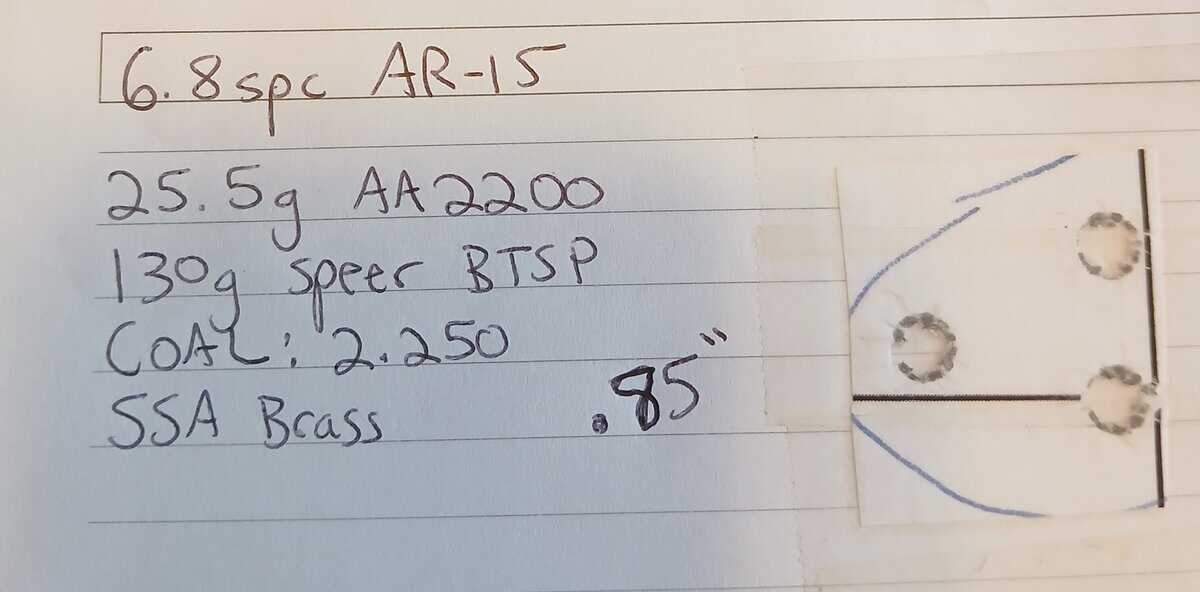 6.8 spc AR-15
25.5g AA2200
130g speer BTSP
COAL: 2.250
SSA Brass
.85"